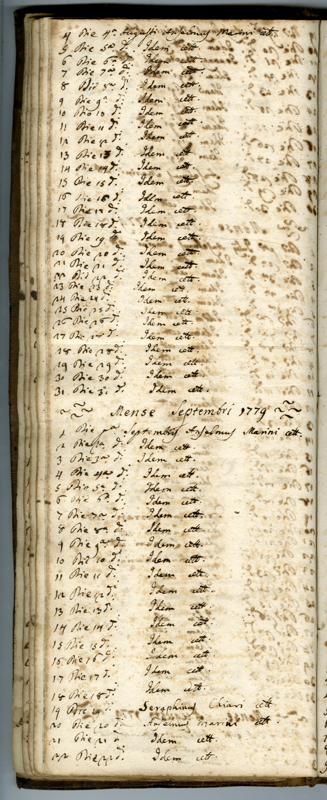 4 Die 4ª Augusti Anselmus Marini cett.
5 Die 5ª d.ⁱ Idem cett.
6 Die 6ª d.ⁱ Idem cett.
7 Die 7ª d.ⁱ Idem cett.
8 Die 8ª d.ⁱ Idem cett.
9 Die 9ª d.ⁱ Idem cett.
10 Die 10 d.ⁱ Idem cett.
11 Die 11 d.ⁱ Idem cett.
12 Die 12 d.ⁱ Idem cett.
13 Die 13 d.ⁱ Idem cett.
14 Die 14 d.ⁱ Idem cett.
15 Die 15 d.ⁱ Idem cett.
16 Die 16 d.ⁱ Idem cett.
17 Die 17 d.ⁱ Idem cett.
18 Die 18 d.ⁱ Idem cett.
19 Die 19 d.ⁱ Idem cett.
20 Die 20 d.ⁱ Idem cett.
21 Die 21 d.ⁱ Idem cett.
22 Die 22 d.ⁱ Idem cett.
23 Die 23 d.ⁱ Idem cett.
24 Die 24 d.ⁱ Idem cett.
25 Die 25 d.ⁱ Idem cett.
26 Die 26 d.ⁱ Idem cett.
27 Die 27 d.ⁱ Idem cett.
28 Die 28 d.ⁱ Idem cett.
29 Die 29 d.ⁱ Idem cett.
30 Die 30 d.ⁱ Idem cett.
31 Die 31 d.ⁱ Idem cett.
Mense Septembri 1779
1 Die pª Septembris Anselmus Marini cett.
2 Die 2ª d.ⁱ Idem cett.
3 Die 3ª d.ⁱ Idem cett.
4 Die 4ª d.ⁱ Idem cett.
5 Die 5ª d.ⁱ Idem cett.
6 Die 6ª d.ⁱ Idem cett.
7 Die 7ª d.ⁱ Idem cett.
8 Die 8ª d.ⁱ Idem cett.
9 Die 9ª d.ⁱ Idem cett.
10 Die 10 d.ⁱ Idem cett.
11 Die 11 d.ⁱ Idem cett.
12 Die 12 d.ⁱ Idem cett.
13 Die 13 d.ⁱ Idem cett.
14 Die 14 d.ⁱ Idem cett.
15 Die 15 d.ⁱ Idem cett.
16 Die 16 d.ⁱ Idem cett.
17 Die 17 d.ⁱ Idem cett.
18 Die 18 d.ⁱ Idem cett.
19 Die 19 d.ⁱ Seraphinus Chiari cett.
20 Die 20 d.ⁱ Anselmus Marini cett.
21 Die 21 d.ⁱ Idem cett.
22 Die 22 d.ⁱ Idem cett.